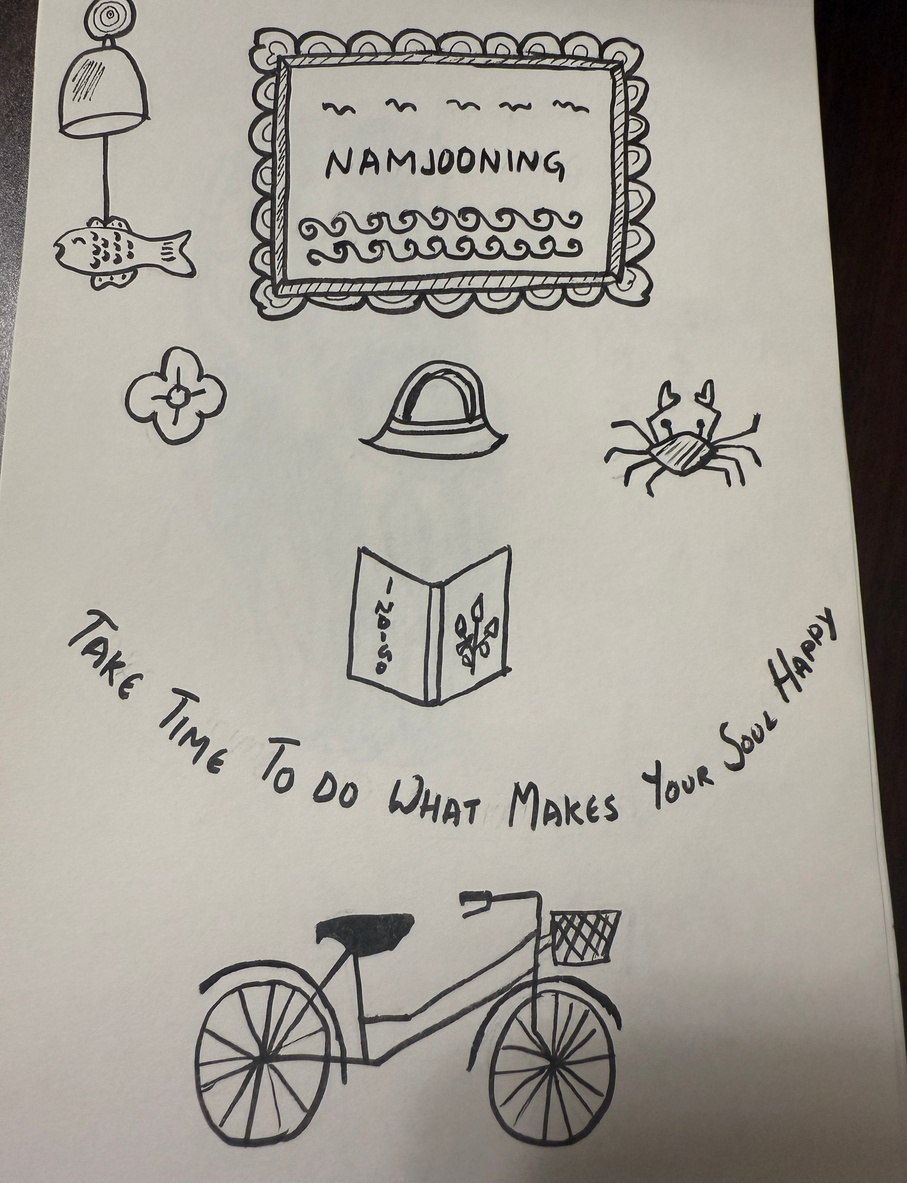 NAMJOONING
INDIGO
TAKE TIME TO DO WHAT MAKES YOUR SOUL HAPPY